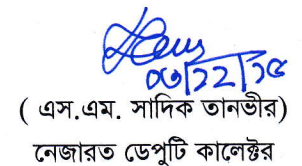 ০৩/১২/১৫
( এস.এম. সাদিক তানভীর)
নেজারত ডেপুটি কালেক্টর